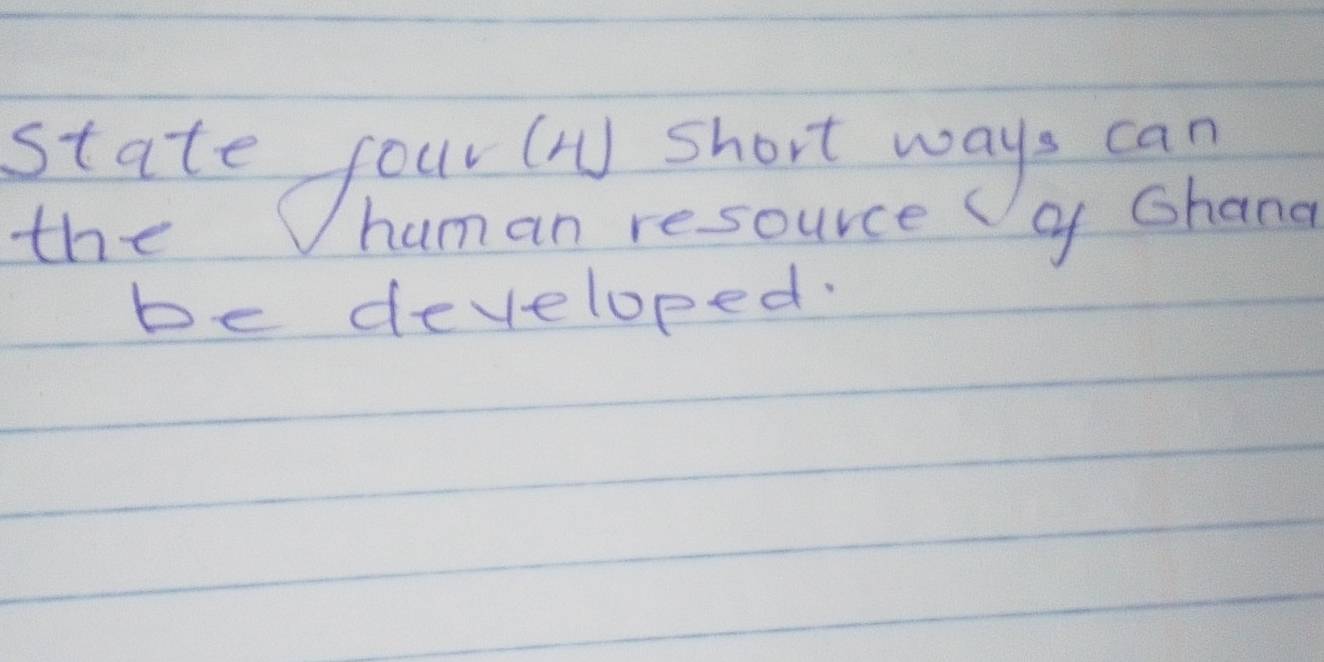 State four (4) short ways can
the human resource of Ghana
be developed.